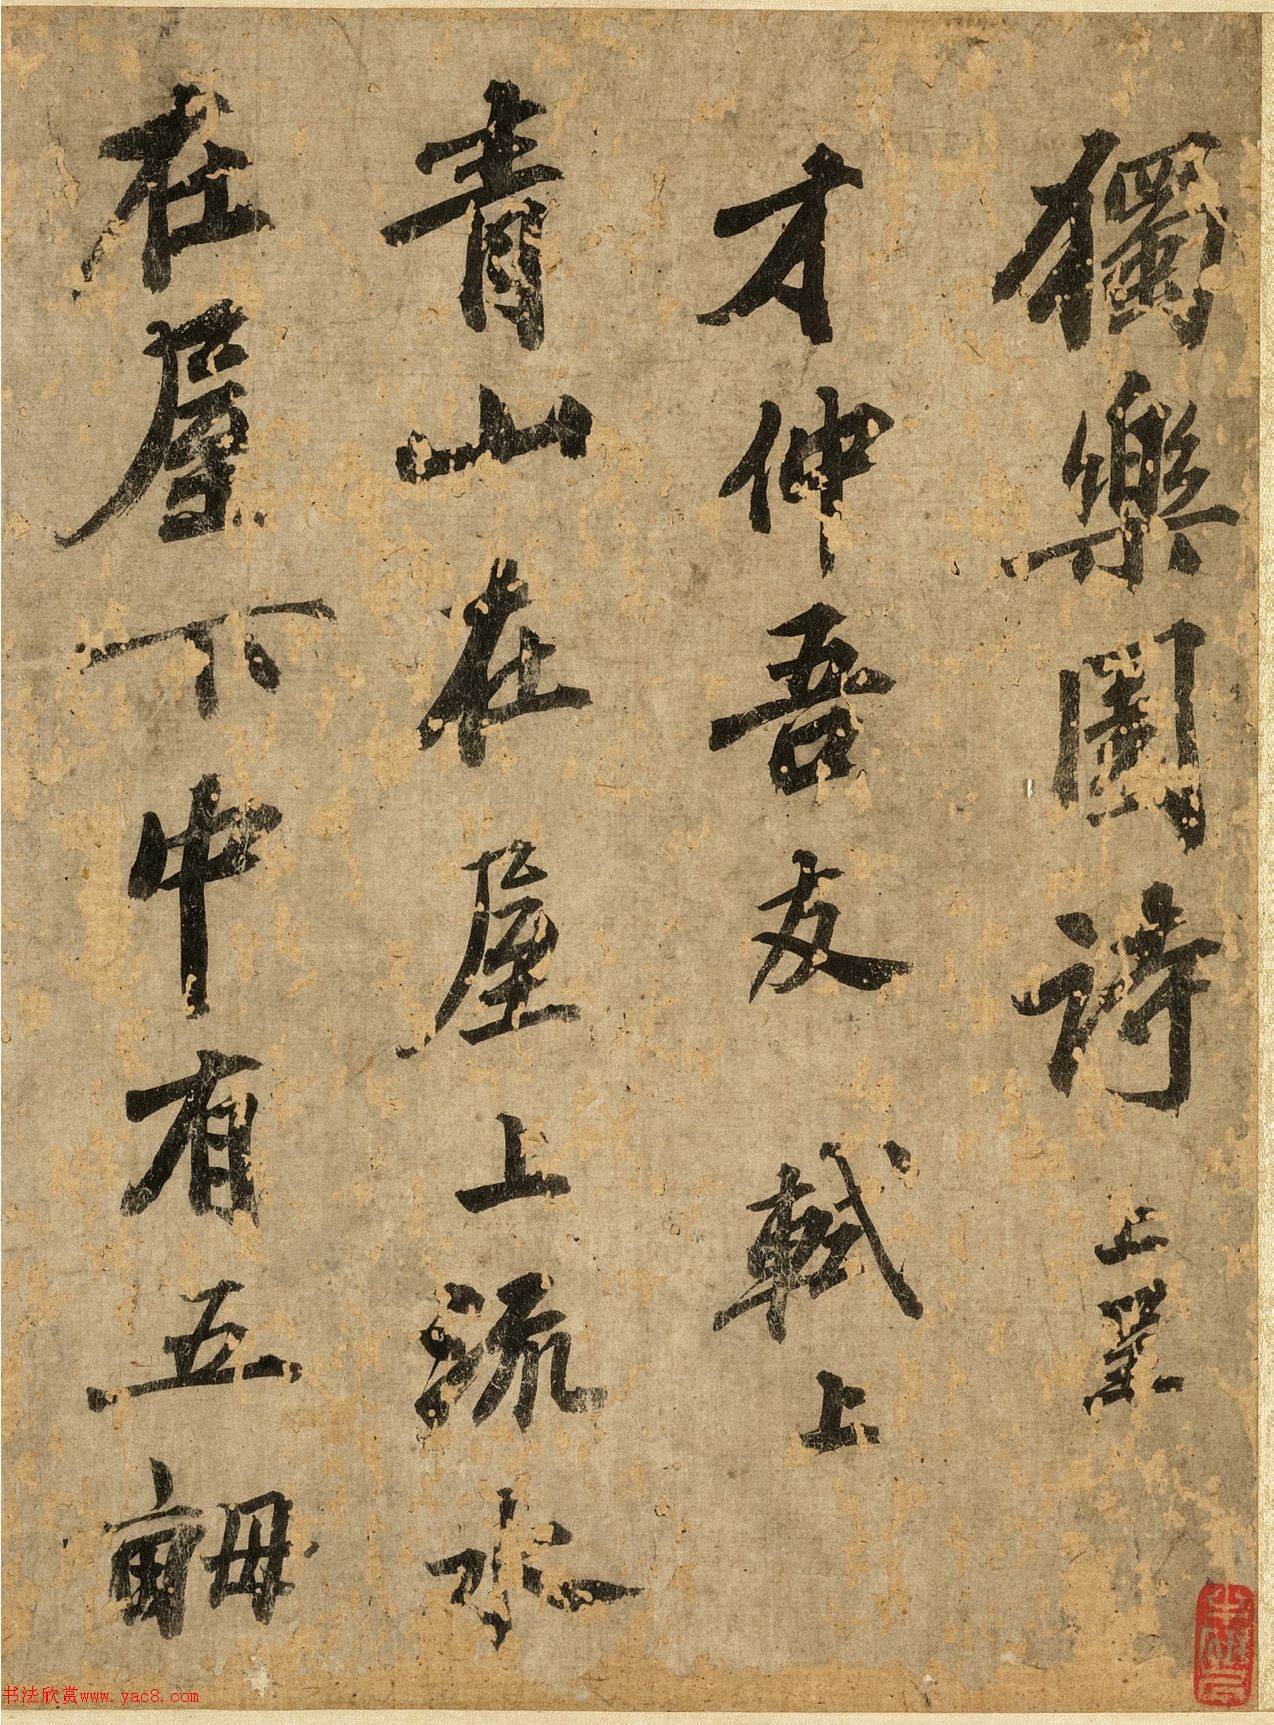 獨樂園詩 上呈
才仲吾友 軾上
青山在屋上流水
在屋下中有五畮
书法欣赏www.yac8.com